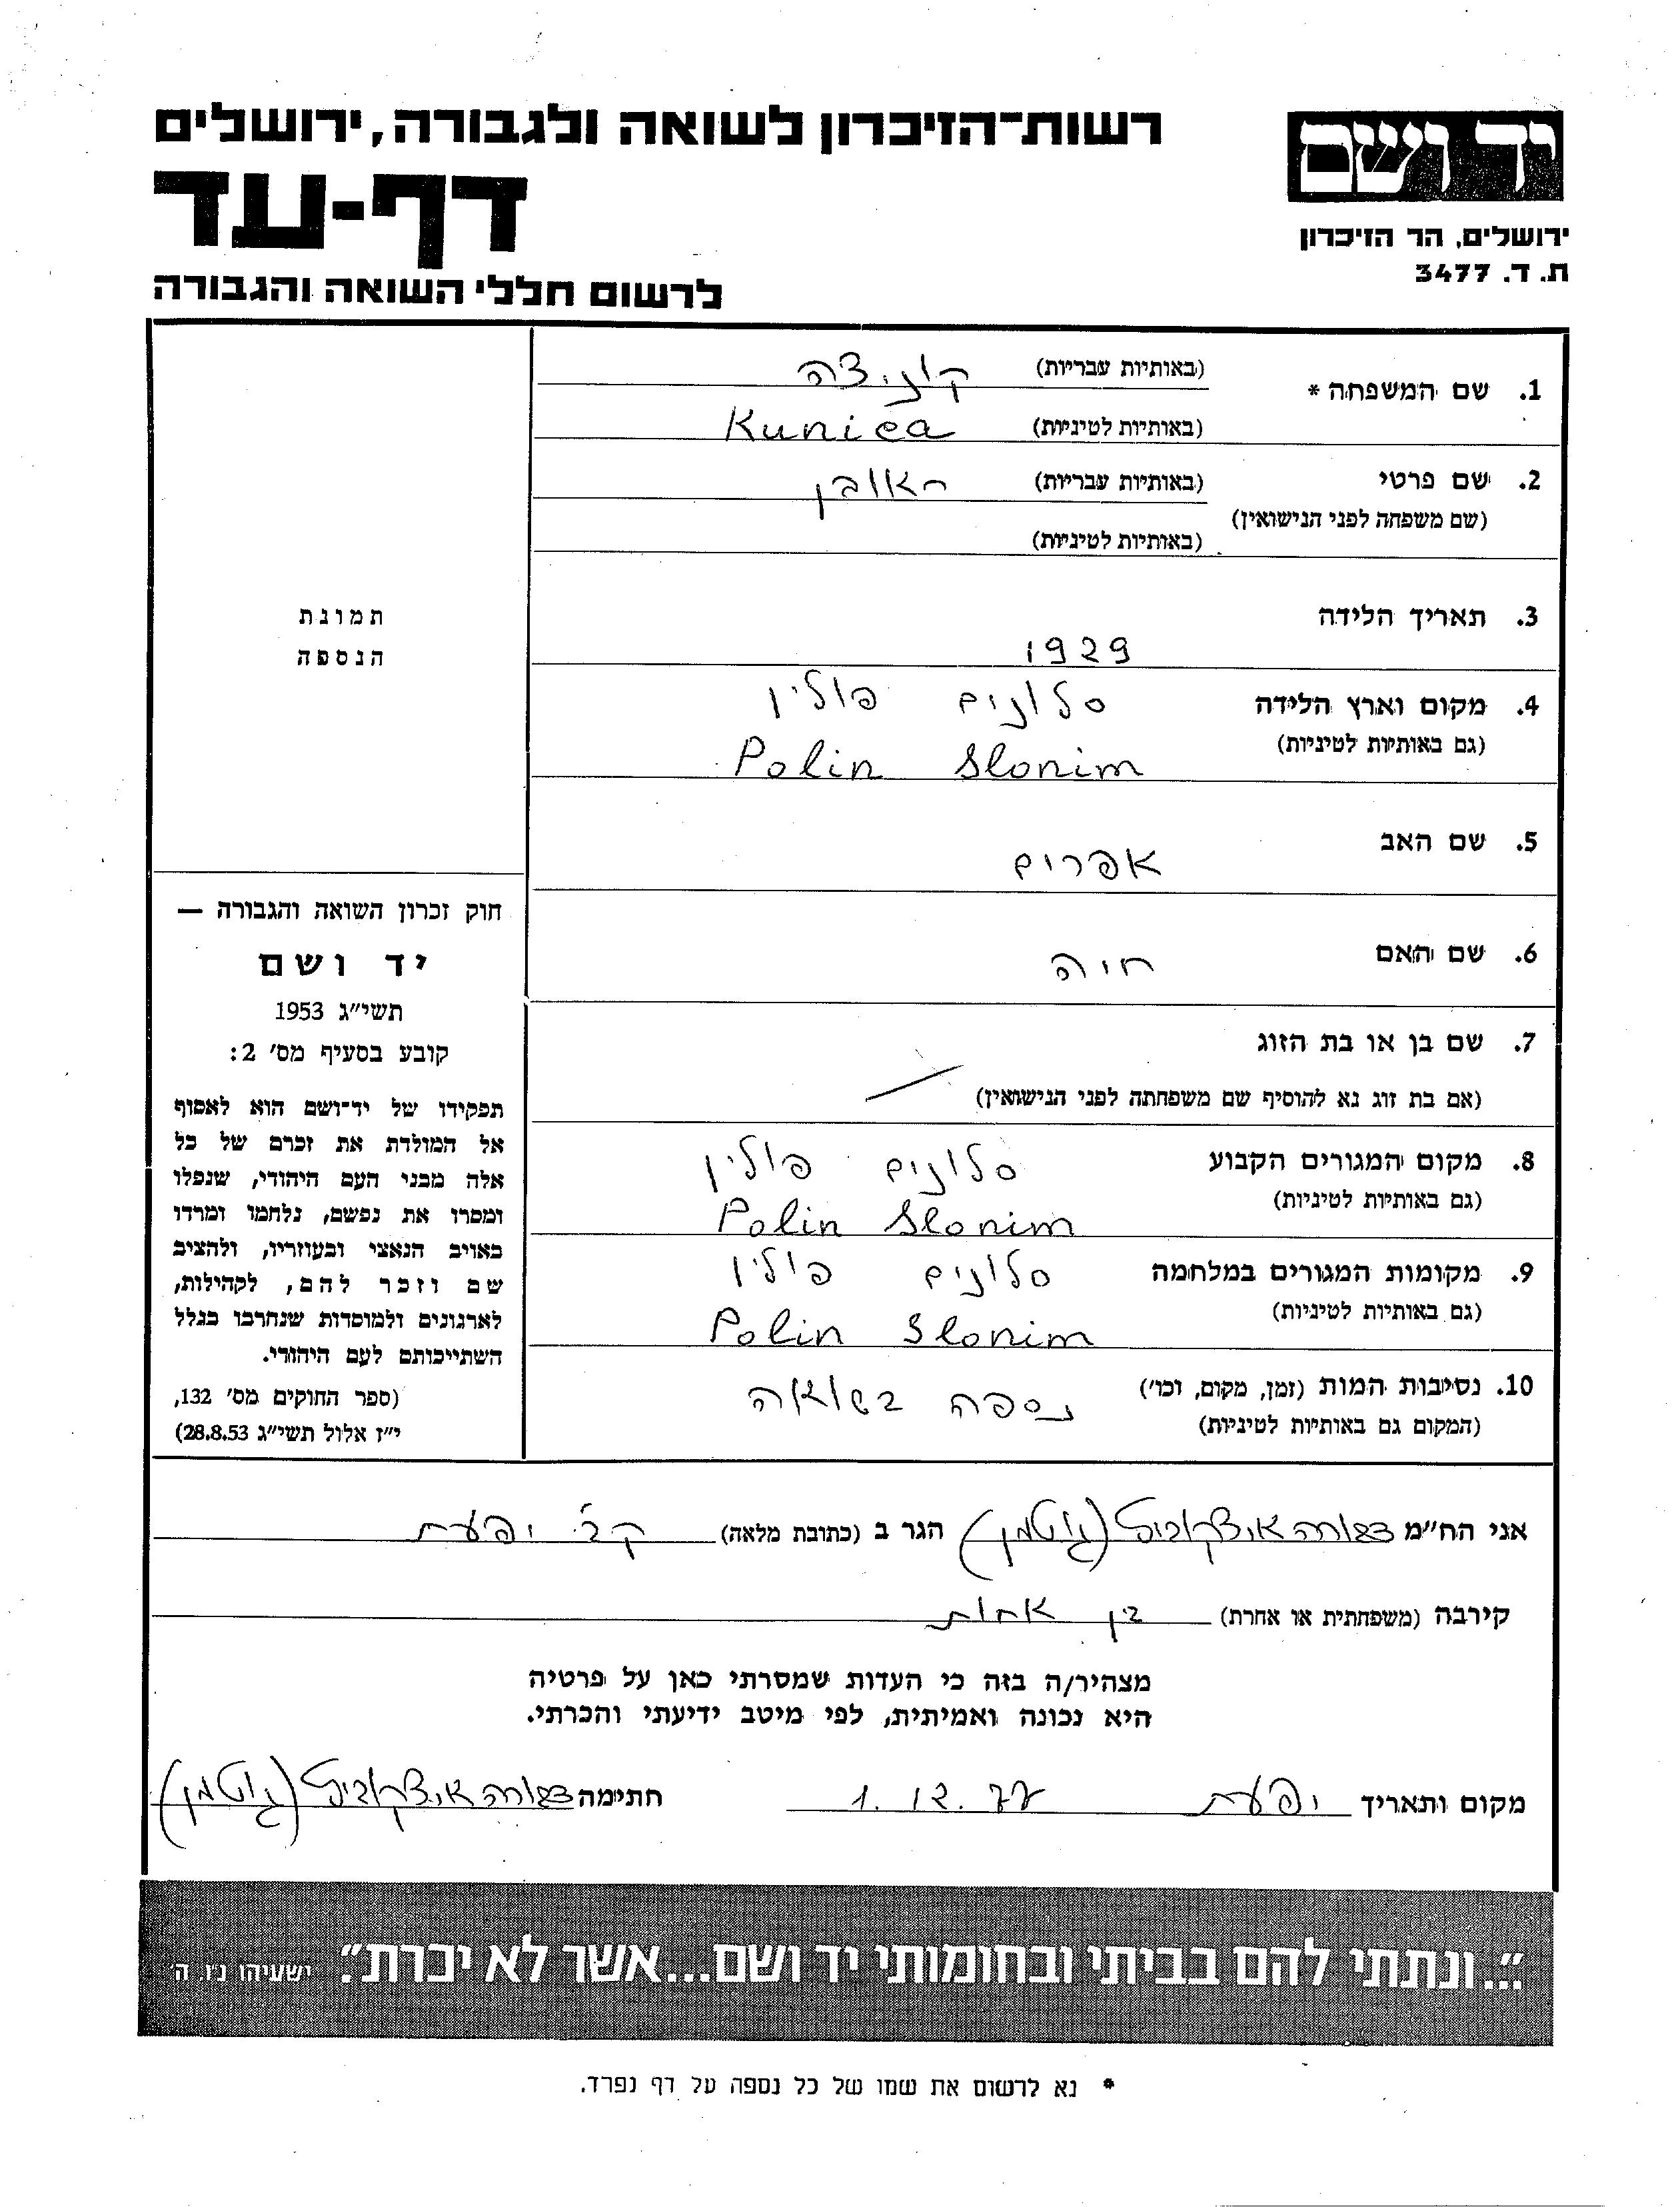 יד ושם
ירושלים, הר הזיכרון
ת. ד. 3477
רשות־הזיכרון לשואה ולגבורה, ירושלים
דף-עד
לרשום חללי השואה והגבורה
1. שם המשפחה * (באותיות עבריות) קוניצה
(באותיות לטיניות) Kunica
2. שם פרטי (באותיות עבריות) ראובן
(שם משפחה לפני הנישואין)
(באותיות לטיניות)
3. תאריך הלידה
1929
4. מקום וארץ הלידה סלונים פולין
(גם באותיות לטיניות)
Polin Slonim
5. שם האב
אפרים
6. שם האם
חיה
7. שם בן או בת הזוג
(אם בת זוג נא להוסיף שם משפחתה לפני הנישואין)
8. מקום המגורים הקבוע סלונים פולין
(גם באותיות לטיניות) Polin Slonim
9. מקומות המגורים במלחמה סלונים פולין
(גם באותיות לטיניות) Polin Slonim
10. נסיבות המות (זמן, מקום, וכו') נספה בשואה
(המקום גם באותיות לטיניות)
תמונת
הנספה
חוק זכרון השואה והגבורה —
יד ושם
תשי״ג 1953
קובע בסעיף מס' 2:
תפקידו של יד־ושם הוא לאסוף
אל המולדת את זכרם של כל
אלה מבני העם היהודי, שנפלו
ומסרו את נפשם, נלחמו ומרדו
באויב הנאצי ובעוזריו, ולהציב
שם וזכר להם, לקהילות,
לארגונים ולמוסדות שנחרבו בגלל
השתייכותם לעם היהודי.
(ספר החוקים מס' 132,
י״ז אלול תשי״ג 28.8.53)
אני הח״מ צפורה איצקוביץ (גוטמן) הגר ב (כתובת מלאה) קב' יפעת
קירבה (משפחתית או אחרת) בן אחות
מצהיר/ה בזה כי העדות שמסרתי כאן על פרטיה
היא נכונה ואמיתית, לפי מיטב ידיעתי והכרתי.
מקום ותאריך יפעת 1.12.77 חתימה צפורה איצקוביץ (גוטמן)
״...ונתתי להם בביתי ובחומותי יד ושם...אשר לא יכרת״. ישעיהו נ״ו, ה'
* נא לרשום את שמו של כל נספה על דף נפרד.